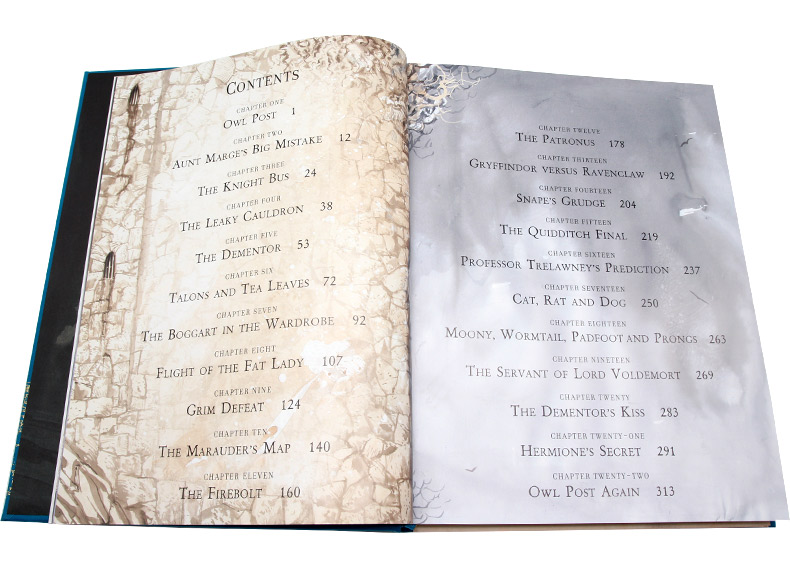 CONTENTS
CHAPTER ONE
OWL POST 1
CHAPTER TWO
AUNT MARGE'S BIG MISTAKE 12
CHAPTER THREE
THE KNIGHT BUS 24
CHAPTER FOUR
THE LEAKY CAULDRON 38
CHAPTER FIVE
THE DEMENTOR 53
CHAPTER SIX
TALONS AND TEA LEAVES 72
CHAPTER SEVEN
THE BOGGART IN THE WARDROBE 92
CHAPTER EIGHT
FLIGHT OF THE FAT LADY 107
CHAPTER NINE
GRIM DEFEAT 124
CHAPTER TEN
THE MARAUDER'S MAP 140
CHAPTER ELEVEN
THE FIREBOLT 160
CHAPTER TWELVE
THE PATRONUS 178
CHAPTER THIRTEEN
GRYFFINDOR VERSUS RAVENCLAW 192
CHAPTER FOURTEEN
SNAPE'S GRUDGE 204
CHAPTER FIFTEEN
THE QUIDDITCH FINAL 219
CHAPTER SIXTEEN
PROFESSOR TRELAWNEY'S PREDICTION 237
CHAPTER SEVENTEEN
CAT, RAT AND DOG 250
CHAPTER EIGHTEEN
MOONY, WORMTAIL, PADFOOT AND PRONGS 263
CHAPTER NINETEEN
THE SERVANT OF LORD VOLDEMORT 269
CHAPTER TWENTY
THE DEMENTOR'S KISS 283
CHAPTER TWENTY-ONE
HERMIONE'S SECRET 291
CHAPTER TWENTY-TWO
OWL POST AGAIN 313